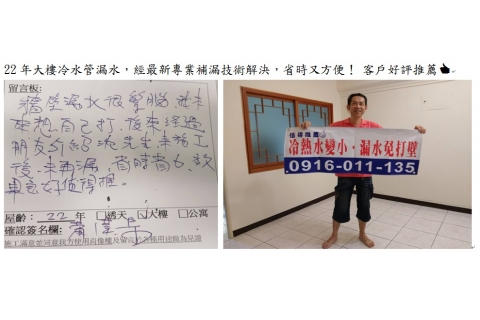 22 年大樓冷水管漏水，經最新專業補漏技術解決，省時又方便！ 客戶好評推薦
留言板:
牆壁漏水很煩腦 本來
想自己打,後來經過
朋友介紹 先生來施工
後,未再漏,省時省力,效
果良好值得推
屋齡： 22 年 □透天 ☑大樓 □公寓
確認簽名欄:
施工滿意並同意我方使用肖像權及留言
值得推薦
冷熱水變小·漏水免打壁
0916-011-135